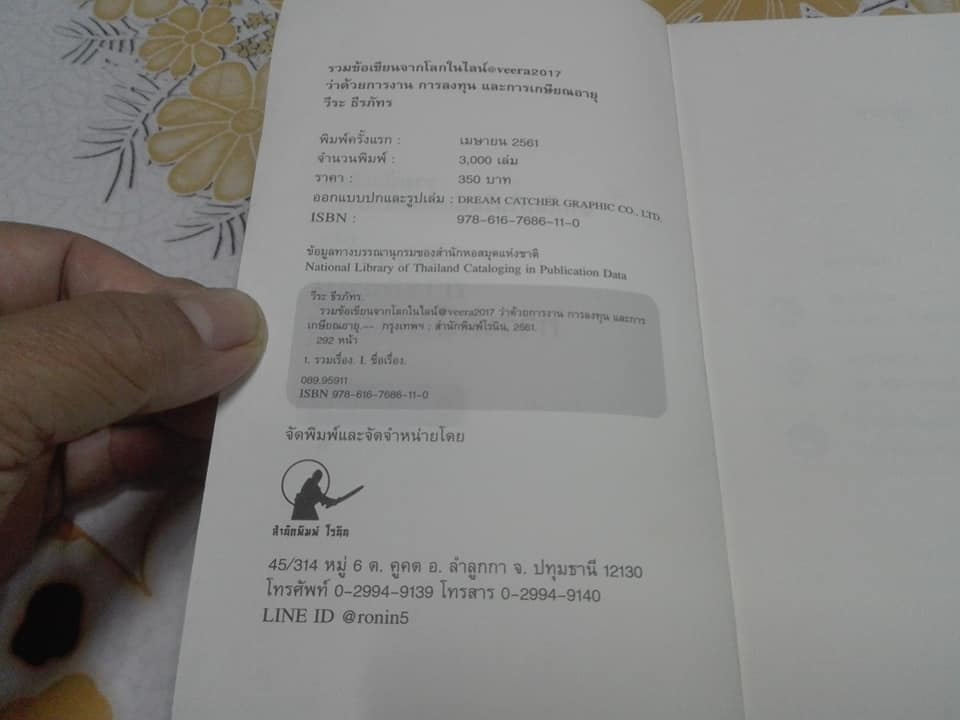 รวมข้อเขียนจากโลกในไลน์@veera2017
ว่าด้วยการงาน การลงทุน และการเกษียณอายุ
วีระ ธีรภัทร
พิมพ์ครั้งแรก : เมษายน 2561
จำนวนพิมพ์ : 3,000 เล่ม
ราคา : 350 บาท
ออกแบบปกและรูปเล่ม : DREAM CATCHER GRAPHIC CO., LTD.
ISBN : 978-616-7686-11-0
ข้อมูลทางบรรณานุกรมของสำนักหอสมุดแห่งชาติ
National Library of Thailand Cataloging in Publication Data
วีระ ธีรภัทร.
รวมข้อเขียนจากโลกในไลน์@veera2017 ว่าด้วยการงาน การลงทุน และการ
เกษียณอายุ.-- กรุงเทพฯ : สำนักพิมพ์โรนิน, 2561.
292 หน้า
1. รวมเรื่อง. I. ชื่อเรื่อง.
089.95911
ISBN 978-616-7686-11-0
จัดพิมพ์และจัดจำหน่ายโดย
สำนักพิมพ์ โรนิน
45/314 หมู่ 6 ต. คูคต อ. ลำลูกกา จ. ปทุมธานี 12130
โทรศัพท์ 0-2994-9139 โทรสาร 0-2994-9140
LINE ID @ronin5